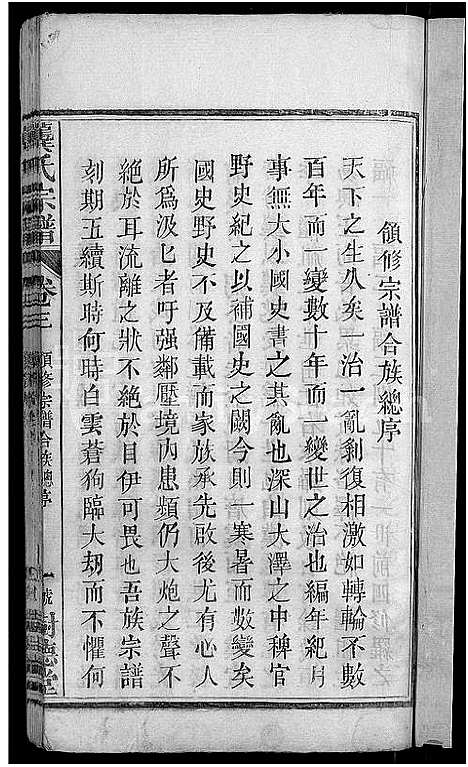 領修宗譜合族總序
天下之生久矣一治一亂剝復相激如轉輪不數
百年而一變數十年而一變世之治也編年紀月
事無大小國史書之其亂也深山大澤之中稗官
野史紀之以補國史之闕今則一寒暑而數變矣
國史野史不及備載而家族承先啟後尤有心人
所爲汲匕者吁强鄰壓境內患頻仍大炮之聲不
絶於耳流離之狀不絶於目伊可畏也吾族宗譜
刻期五續斯時何時白雲蒼狗臨大劫而不懼何
龔氏宗譜
卷三
領修宗譜合族總序
一號
德堂